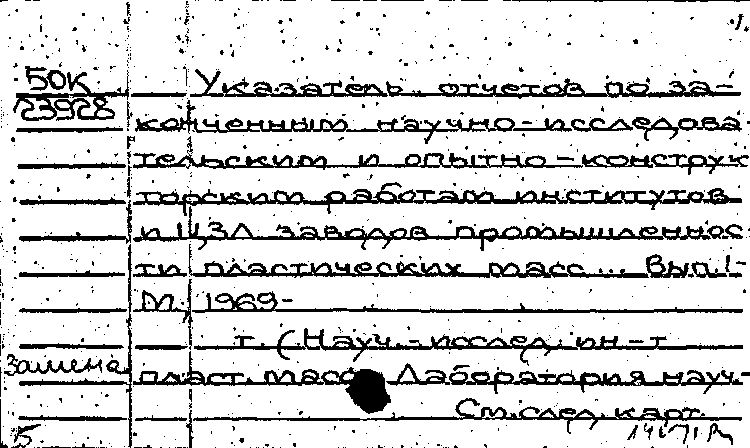 1.
50К Указатель отчетов по за-
23928
конченным научно-исследова-
тельским и опытно-конструк
торским работам институтов
и ЦЗЛ заводов промышленнос-
ти пластических масс... Вып.1-
М., 1969-
т. (Науч.-исслед. ин-т
Замена пласт. масс. Лаборатория науч.-
См. след. карт.
15